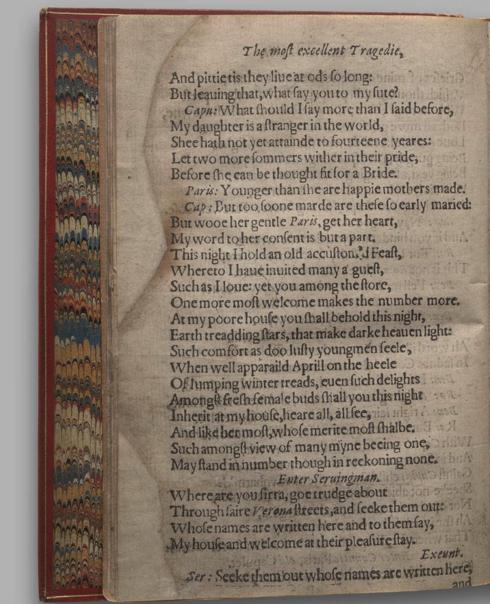 The most excellent Tragedie,
And pittie tis they liue at ods so long:
But leauing that, what say you to my sute?
Capu: What should I say more than I said before,
My daughter is a stranger in the world,
Shee hath not yet attainde to fourteene yeares:
Let two more sommers wither in their pride,
Before she can be thought fit for a Bride.
Paris: Younger than she are happie mothers made.
Cap: But too soone marde are these so early maried:
But wooe her gentle Paris, get her heart,
My word to her consent is but a part.
This night I hold an old accustom'd Feast,
Whereto I haue inuited many a guest,
Such as I loue: yet you among the store,
One more most welcome makes the number more.
At my poore house you shall behold this night,
Earth treadding stars, that make darke heauen light:
Such comfort as doo lusty youngmen feele,
When well apparaild Aprill on the heele
Of lumping winter treads, euen such delights
Amongst fresh female buds shall you this night
Inherit at my house, heare all, all see,
And like her most, whose merite most shalbe.
Such amongst view of many myne beeing one,
May stand in number though in reckoning none.
Enter Seruingman.
Where are you sirra, goe trudge about
Through faire Verona streets, and seeke them out:
Whose names are written here and to them say,
My house and welcome at their pleasure stay.
Exeunt.
Ser: Seeke them out whose names are written here,
and